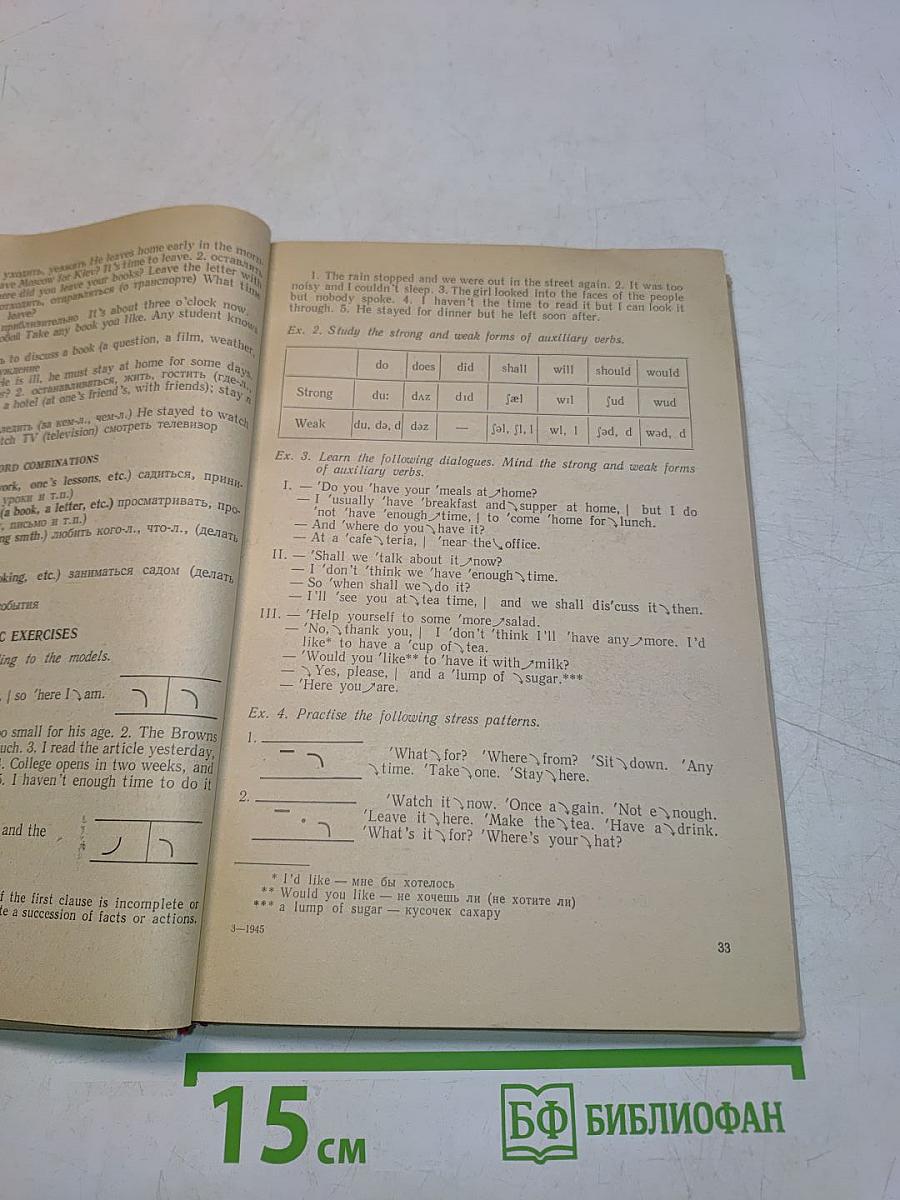 уходить, уезжать He leaves home early in the morn-
ave Moscow for Kiev? It's time to leave. 2. оставлять
ere did you leave your books? Leave the letter with
отходить, отправляться (о транспорте) What time
leave?
приблизительно It's about three o'clock now.
бой Take any book you like. Any student knows
ь to discuss a book (a question, a film, weather,
уждение
He is ill, he must stay at home for some days.
s? 2. останавливаться, жить, гостить (где-л.,
a hotel (at one's friend's, with friends); stay a
ледить (за кем-л., чем-л.) He stayed to watch
tch TV (television) смотреть телевизор
ORD COMBINATIONS
work, one's lessons, etc.) садиться, прини-
уроки и т.п.)
(a book, a letter, etc.) просматривать, про-
, письмо и т.п.)
ng smth.) любить кого-л., что-л., (делать
oking, etc.) заниматься садом (делать
обытия
C EXERCISES
ling to the models.
, | so 'here I ↘am.
oo small for his age. 2. The Browns
uch. 3. I read the article yesterday,
. College opens in two weeks, and
5. I haven't enough time to do it
and the
f the first clause is incomplete or
te a succession of facts or actions.
1. The rain stopped and we were out in the street again. 2. It was too
noisy and I couldn't sleep. 3. The girl looked into the faces of the people
but nobody spoke. 4. I haven't the time to read it but I can look it
through. 5. He stayed for dinner but he left soon after.
Ex. 2. Study the strong and weak forms of auxiliary verbs.
do does did shall will should would
Strong du: dʌz dıd ʃæl wıl ʃud wud
Weak du, də, d dəz — ʃəl, ʃl, l wl, l ʃəd, d wəd, d
Ex. 3. Learn the following dialogues. Mind the strong and weak forms
of auxiliary verbs.
I. — 'Do you 'have your 'meals at ↗home?
— I 'usually 'have 'breakfast and ↘supper at home, | but I do
'not 'have 'enough ↗time, | to 'come 'home for ↘lunch.
— And 'where do you ↘have it?
— At a 'cafe ↘teria, | 'near the ↘office.
II. — 'Shall we 'talk about it ↗now?
— I 'don't 'think we 'have 'enough ↘time.
— So 'when shall we ↘do it?
— I'll 'see you at ↘tea time, | and we shall dis'cuss it ↘then.
III. — 'Help yourself to some 'more ↗salad.
— 'No, ↘thank you, | I 'don't 'think I'll 'have any ↗more. I'd
like* to have a 'cup of ↘tea.
— 'Would you 'like** to 'have it with ↗milk?
— ↘Yes, please, | and a 'lump of ↘sugar.***
— 'Here you ↗are.
Ex. 4. Practise the following stress patterns.
1.
'What ↘for? 'Where ↘from? 'Sit ↘down. 'Any
↘time. 'Take ↘one. 'Stay ↘here.
2.
'Watch it ↘now. 'Once a ↘gain. 'Not e ↘nough.
'Leave it ↘here. 'Make the ↘tea. 'Have a ↘drink.
'What's it ↘for? 'Where's your ↘hat?
* I'd like — мне бы хотелось
** Would you like — не хочешь ли (не хотите ли)
*** a lump of sugar — кусочек сахару
3—1945
33
15 см
БФ БИБЛИОФАН